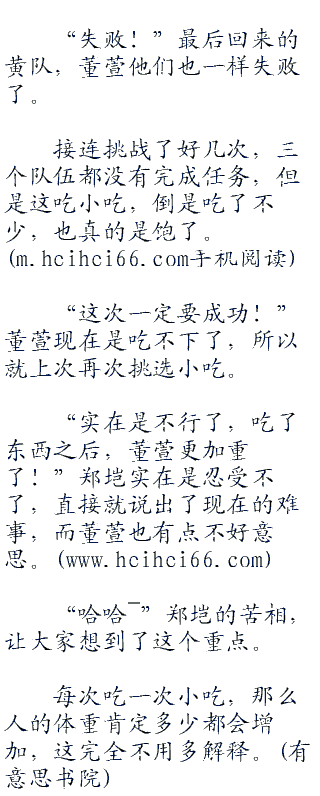 “失败！”最后回来的
黄队，董萱他们也一样失败
了。
接连挑战了好几次，三
个队伍都没有完成任务，但
是这吃小吃，倒是吃了不
少，也真的是饱了。
(m.hcihci66.com手机阅读)
“这次一定要成功！”
董萱现在是吃不下了，所以
就上次再次挑选小吃。
“实在是不行了，吃了
东西之后，董萱更加重
了！”郑垲实在是忍受不
了，直接就说出了现在的难
事，而董萱也有点不好意
思。(www.hcihci66.com)
“哈哈¯”郑垲的苦相，
让大家想到了这个重点。
每次吃一次小吃，那么
人的体重肯定多少都会增
加，这完全不用多解释。(有
意思书院)